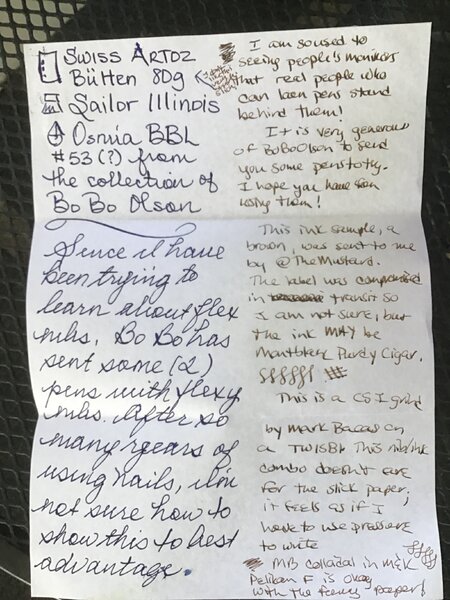 Swiss Artoz
Bütten 80g
Sailor Illinois
Osmia BBL
#53(?) from
the collection of
BoBo Olson
Since I have
been trying to
learn about flex
nibs, BoBo has
sent some (2)
pens with flexy
nibs. After so
many years of
using nails, I'm
not sure how to
show this to best
advantage.
I am so used to
seeing people's monikers
that real people who
can keen pens stand
behind them!
It is very generous
of BoBoOlson to send
you some pens to try.
I hope you have fun
using them!
This ink sample, a
brown, was sent to me
by @TheMustard.
The label was compromised
in transit so
I am not sure, but
the ink MAY be
Montblanc Purdy Cigar.
This is a CSI grind
by Mark Bacas on
a TWISBI. This nib/ink
combo doesn't care
for the slick paper;
it feels as if I
have to use pressure
to write
MB colloidal in M&K
Pelikan F is okay
with the paper!